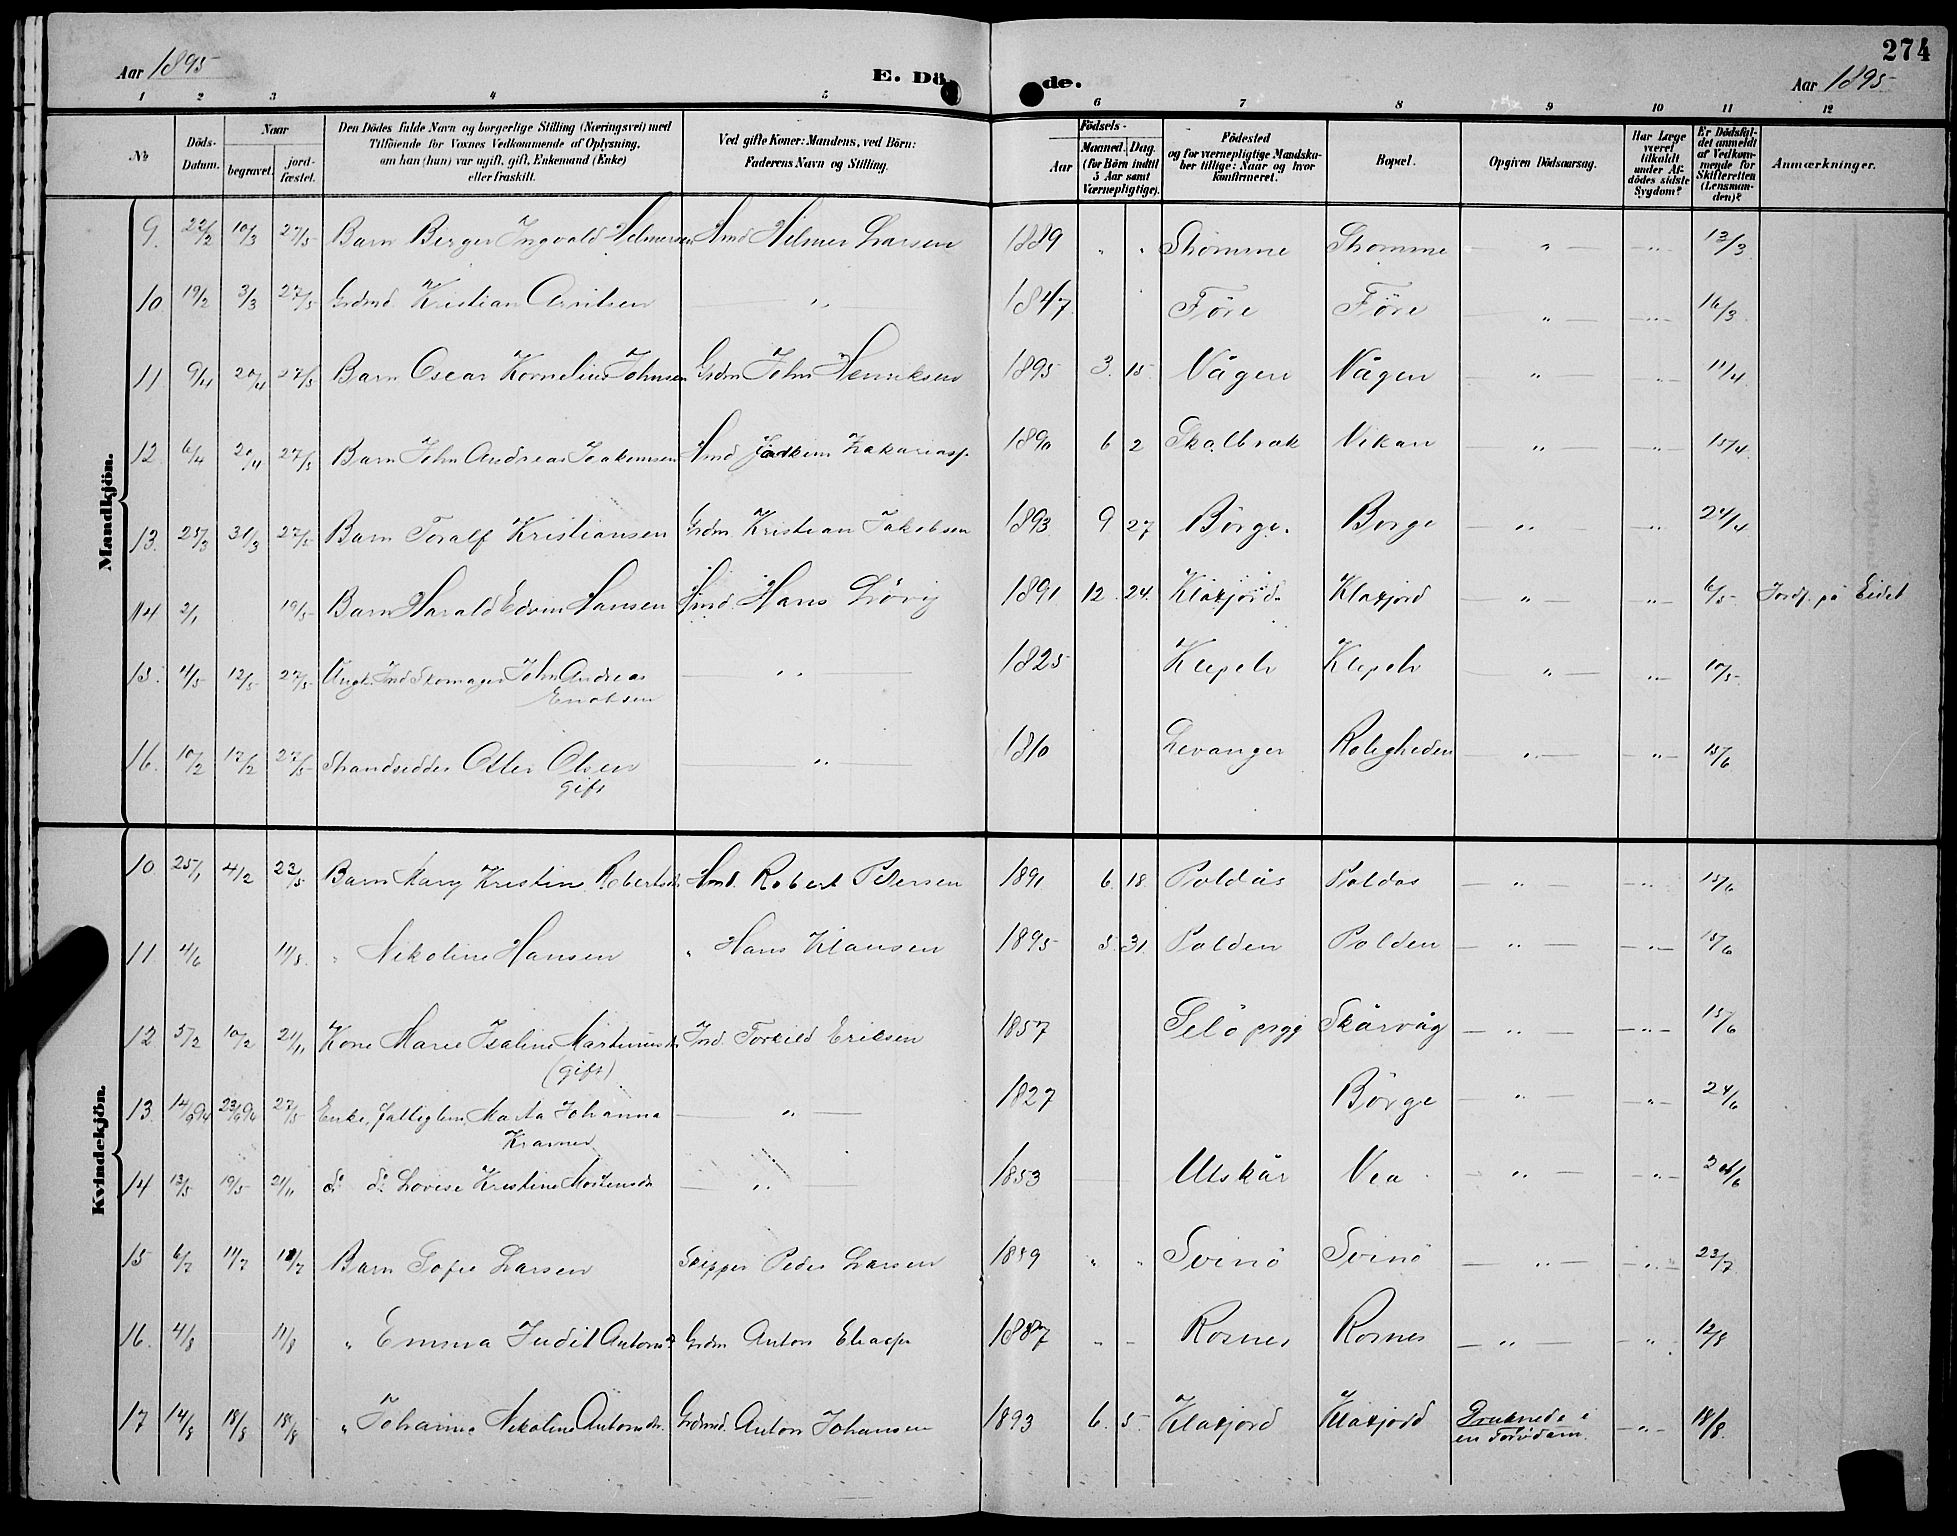 274
Aar 1895
E. Dö de.
Aar 1895
1 2 3 4 5 6 7 8 9 10 11 12
No
Döds-Datum.
Naar
begravet.
jord-fæstet.
Den Dödes fulde Navn og borgerlige Stilling (Næringsvei) med
Tilföiende for Voxnes Vedkommende af Oplysning,
om han (hun) var ugift, gift, Enkemand (Enke)
eller fraskilt.
Ved gifte Koner: Mandens, ved Börn:
Faderens Navn og Stilling.
Födsels-
Aar
Maaned. Dag.
(for Börn indtil
5 Aar samt
Værnepligtige).
Födested
og for værnepligtige Mandska-
ber tillige: Naar og hvor
konfirmeret.
Bopæl.
Opgiven Dödsaarsag.
Har Læge
været
tilkaldt
under Af-
dödes sidste
Sygdom?
Er Dödsfal-
det anmeldt
af Vedkom-
mende for
Skifteretten
(Lensman-
den)?
Anmærkninger.
Mandkjön.
9. 22/2 10/3 27/5 Barn Berger Ingvald Helmersen Hmd Hilmer Larsen 1889 " " Strömme Strömme " " 13/3
10 19/2 3/3 27/5 Grdmd. Kristian Arntsen " 1847 Före Före " " 16/3
11 9/4 20/4 27/5 Barn Oscar Kornelius Johnsen Grdm John Henriksen 1895 3. 15. Vågen Vågen " " 11/4
12 6/4 20/4 27/5 Barn John Andreas Joakimsen Hmd Joakim Zakariass. 1890 6 2 Skalbrak Vikan " " 15/4
13. 25/3 31/3 27/5 Barn Toralf Kristiansen Grdm. Kristian Jakobsen 1893 9. 27 Börge. Borge " " 24/4
14 2/1 19/5 Barn Harald Edvin Hansen Hmd. Hans Lövig 1891 12. 24. Klaxjord. Klaxjord " " 6/5 Jordf. på Eidet
15. 4/5 12/5 27/5 Ugt. Ind. Skomager John Andreas
Enoksen " 1825 " " 10/5
16. 10/2 17/2 27/5 Strandsidder Otter Olsen
gift " 1810 Levanger Roligheden " " 15/6
Kvindekjön.
10 25/1 4/2 23/5 Barn Mary Kristine Robertsdr. Hmd. Robert Petersen 1891 6. 18. Poldås Poldås " " 15/6
11 4/6 11/8. " Nikoline Hansen " Hans Klausen 1895 5. 31. Polden Polden " " 15/6
12 5/2 10/2 21/11 Kone Marie Isaline Martinusdr. Ind. Torkild Eriksen 1857 Skårvåg " " 15/6
(gift)
13. 14/9 94 23/9 94 27/5 Enke, fattiglem. Marta Johanna
Kramer " 1827 Börge " " 24/6
14 13/5 19/5 21/11 do do Lovise Kristine Mortensdr. " 1853 Utskår Vea " " 24/6
15 6/7 11/7 18/7 Barn Sofie Larsen Skipper Peder Larsen 1889 " " Svinö Svinö " " 23/7
16. 4/8 11/8 " Emma Judit Antonsdr Grdm Anton Eliass. 1887 " " Rosnes Rosnes " " 12/8
17 14/8 18/8 18/8 " Johanna Nikoline Antonsdr. Grdmd. Anton Johansen 1893 6. 5 Klaxjord Klaxjord Druknede i
en Torvdam. " 18/8.